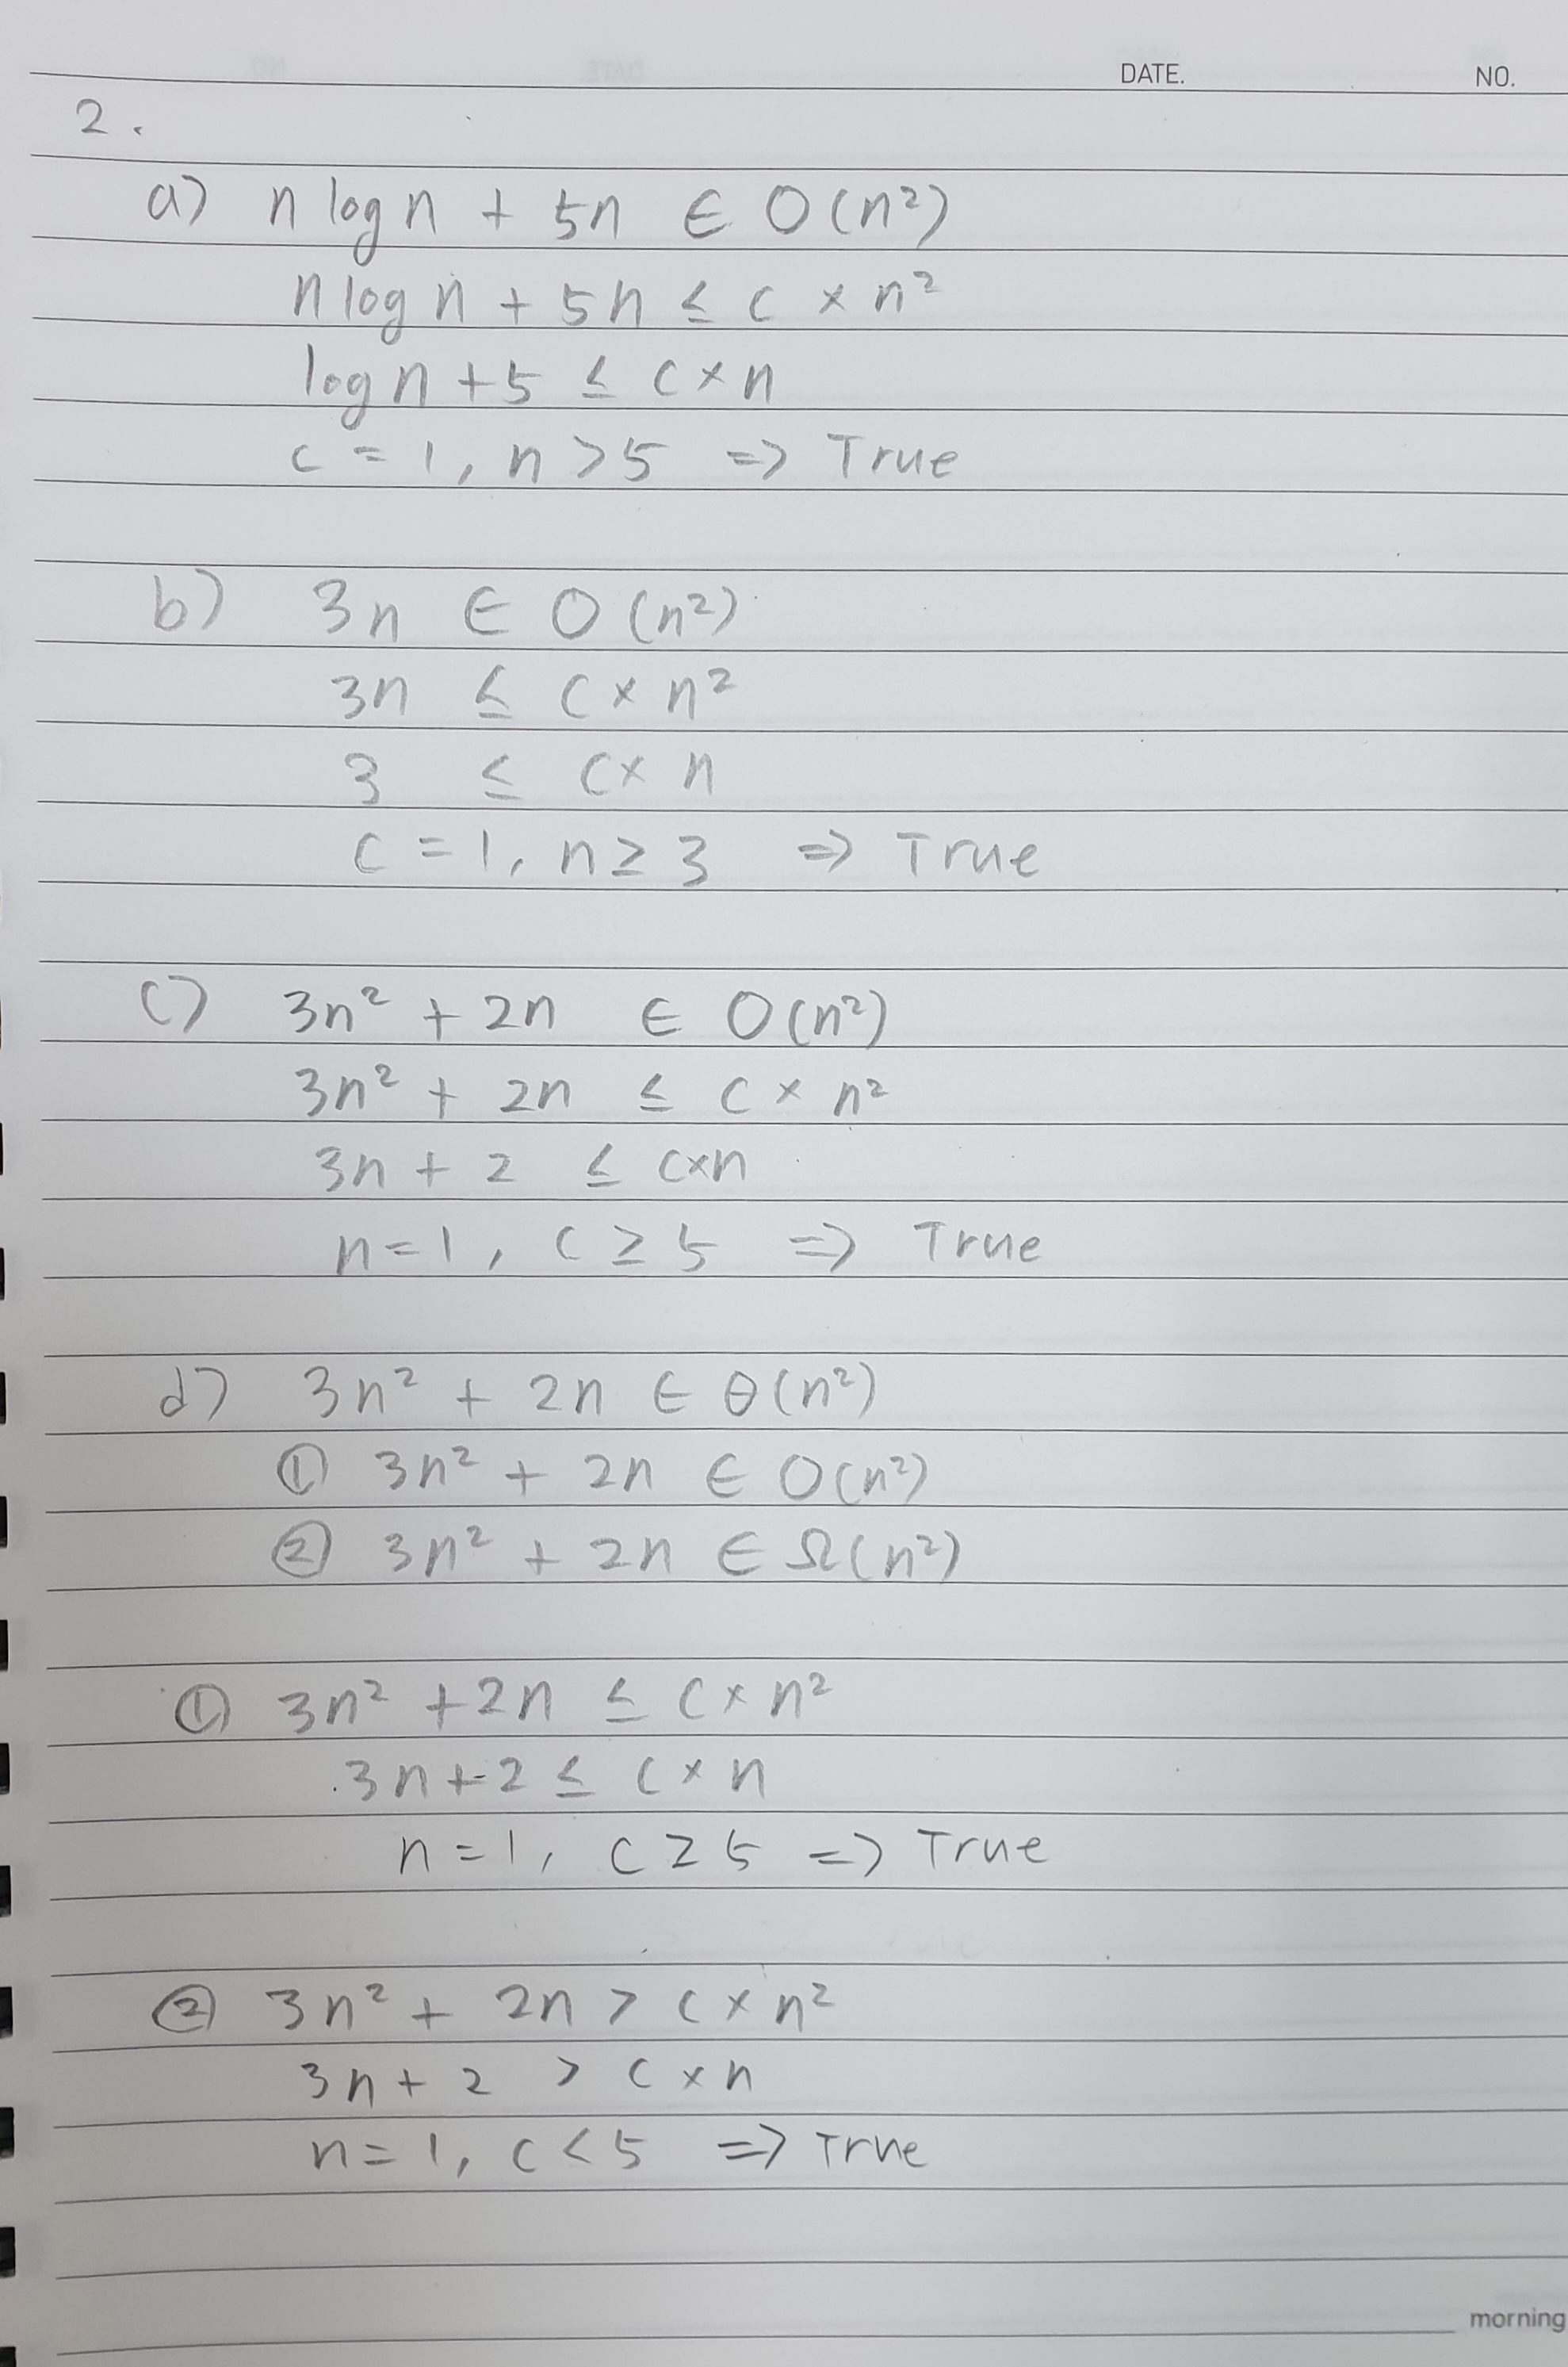 DATE. NO.
2.
a) n log n + 5n ∈ O(n²)
n log n + 5n ≤ c × n²
log n + 5 ≤ c × n
c = 1, n > 5 => True
b) 3n ∈ O(n²)
3n ≤ c × n²
3 ≤ c × n
c = 1, n ≥ 3 => True
c) 3n² + 2n ∈ O(n²)
3n² + 2n ≤ c × n²
3n + 2 ≤ c×n
n = 1, c ≥ 5 => True
d) 3n² + 2n ∈ θ(n²)
① 3n² + 2n ∈ O(n²)
② 3n² + 2n ∈ Ω(n²)
① 3n² + 2n ≤ c × n²
3n + 2 ≤ c × n
n = 1, c ≥ 5 => True
② 3n² + 2n > c × n²
3n + 2 > c × n
n = 1, c < 5 => True
morning